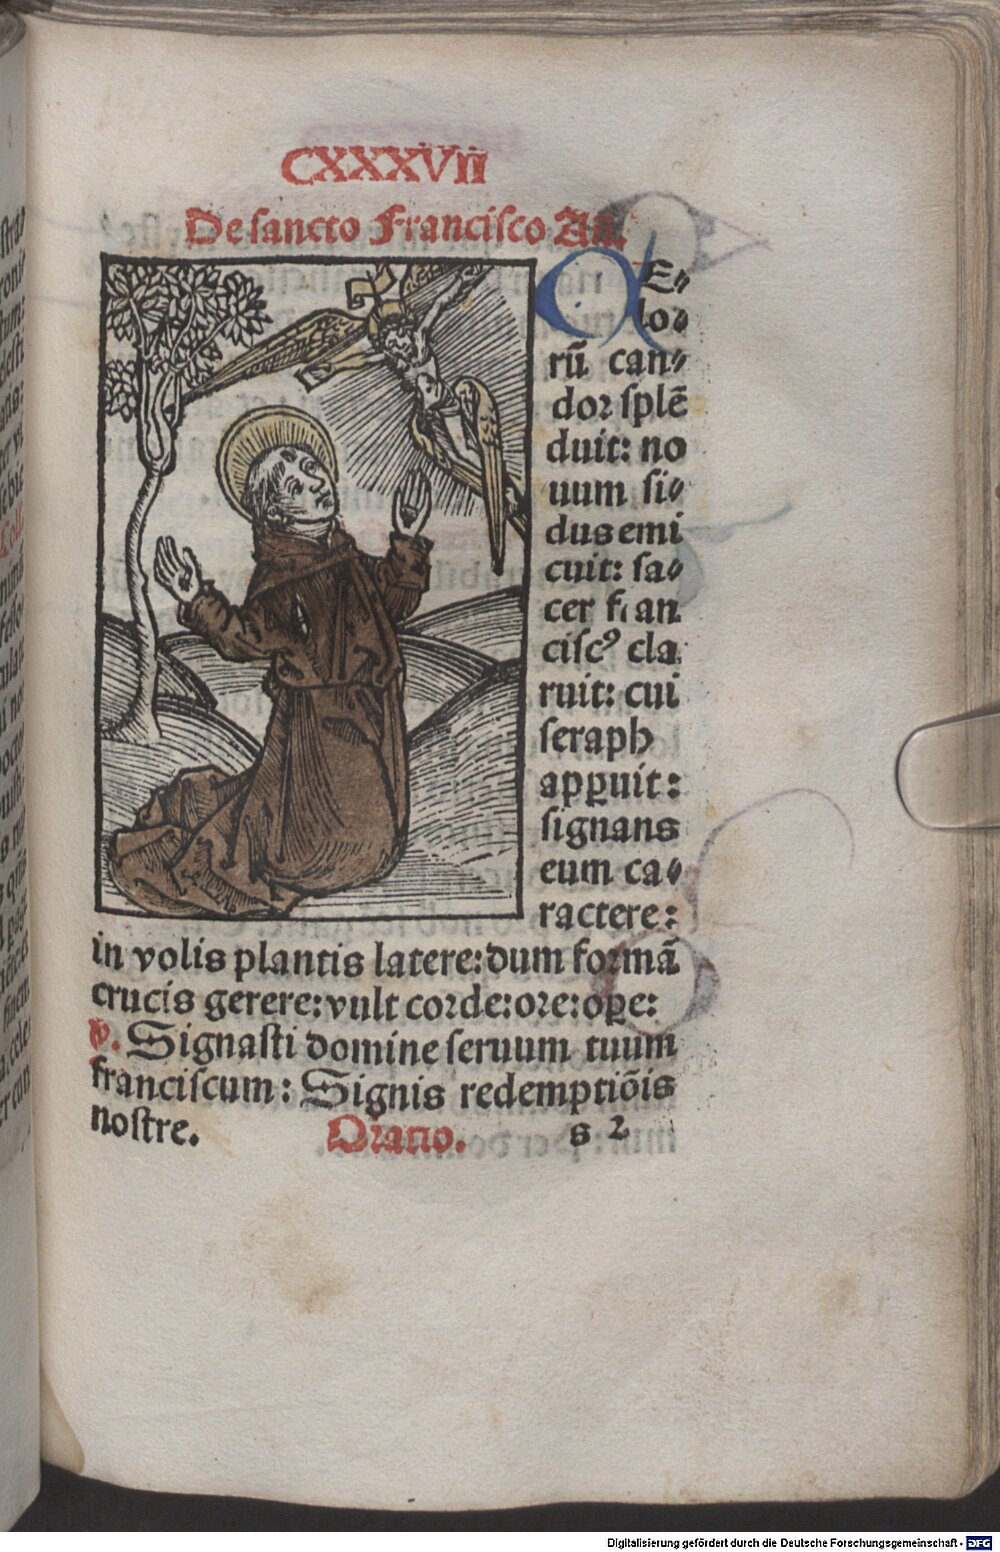 CXXXVII
De sancto Francisco Añ.
CE⸗
lo⸗
rū can⸗
dor splē
duit: no
uum si⸗
dus emi
cuit: sa⸗
cer fran
ciscꝰ cla
ruit: cui
seraph
apꝑuit:
signans
eum ca⸗
ractere:
in volis plantis latere: dum formā
crucis gerere: vult corde: ore: oꝑe:
V. Signasti domine seruum tuum
franciscum: Signis redemptiōis
nostre. Oratio. s 2
Digitalisierung gefördert durch die Deutsche Forschungsgemeinschaft - DFG